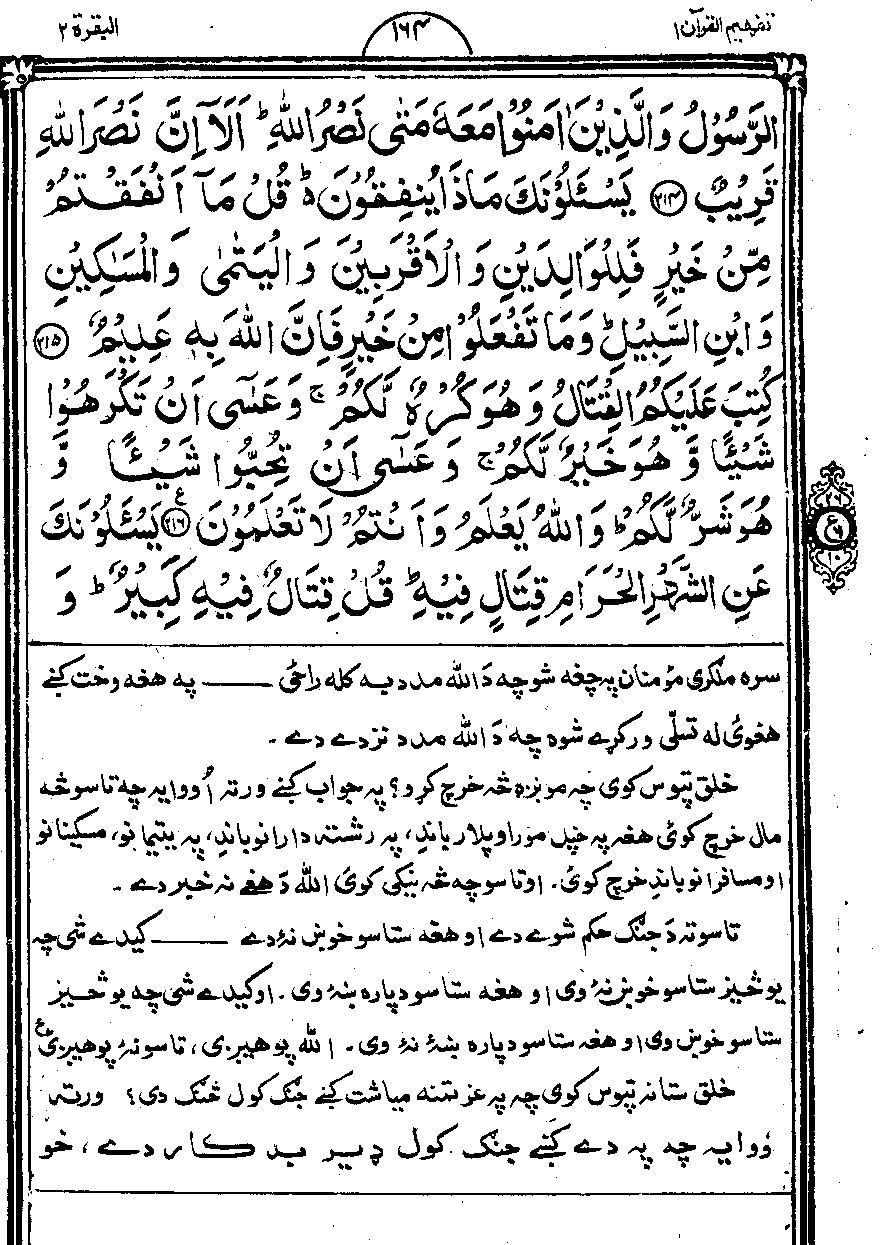 تفهیم القرآن ۱
۱۶۴
البقرة ۲
الرَّسُوْلُ وَالَّذِيْنَ اٰمَنُوْا مَعَهٗ مَتٰى نَصْرُ اللّٰهِ ؕ اَلَآ اِنَّ نَصْرَ اللّٰهِ
قَرِيْبٌ ﴿۲۱۴﴾ يَسْـَٔلُوْنَكَ مَاذَا يُنْفِقُوْنَ ؕ قُلْ مَآ اَنْفَقْتُمْ
مِّنْ خَيْرٍ فَلِلْوَالِدَيْنِ وَالْاَقْرَبِيْنَ وَالْيَتٰمٰى وَالْمَسٰكِيْنِ
وَابْنِ السَّبِيْلِ ؕ وَمَا تَفْعَلُوْا مِنْ خَيْرٍ فَاِنَّ اللّٰهَ بِهٖ عَلِيْمٌ ﴿۲۱۵﴾
كُتِبَ عَلَيْكُمُ الْقِتَالُ وَهُوَ كُرْهٌ لَّكُمْ ۚ وَعَسٰٓى اَنْ تَكْرَهُوْا
شَيْـًٔا وَّهُوَ خَيْرٌ لَّكُمْ ۚ وَعَسٰٓى اَنْ تُحِبُّوْا شَيْـًٔا وَّ
هُوَ شَرٌّ لَّكُمْ ؕ وَاللّٰهُ يَعْلَمُ وَاَنْتُمْ لَا تَعْلَمُوْنَ ﴿۲۱۶﴾ ع يَسْـَٔلُوْنَكَ
۲۶
ع
۱۰
عَنِ الشَّهْرِ الْحَرَامِ قِتَالٍ فِيْهِ ؕ قُلْ قِتَالٌ فِيْهِ كَبِيْرٌ ؕ وَ
سره ملګری مؤمنان په چغه شو چه دَ الله مدد به کله راځی ــــــ په هغه وخت کښے
هغوئ له تسلّی ورکړے شوه چه دَ الله مدد نزدے دے ۔
خلق تپوس کوی چه مونږه څه خرچ کړو؟ په جواب کښے ورته اُووایه چه تاسو څه
مال خرچ کوئ هغه په خپل مور او پلار باندِ، په رشته دارانو باندِ، په یتیمانو، مسکینانو
او مسافرانو باندِ خرچ کوئ. او تاسو چه څه نیکی کوئ الله دَ هغے نه خبر دے ۔
تاسو ته دَ جنګ حکم شوے دے او هغه ستاسو خوښ نۀ دے ــــــ کیدے شی چه
یو څیز ستاسو خوښ نۀ وی او هغه ستاسو دپاره ښۀ وی ۔ او کیدے شی چه یو څیز
ستاسو خوښ وی او هغه ستاسو دپاره ښۀ نۀ وی ۔ الله پوهیږی، تاسو نۀ پوهیږئ ع
خلق ستا نه تپوس کوی چه په عزتمنه میاشت کښے جنګ کول څنګ دی؟ ورته
وُوایه چه په دے کښے جنګ کول ډیر بد کار دے، خو